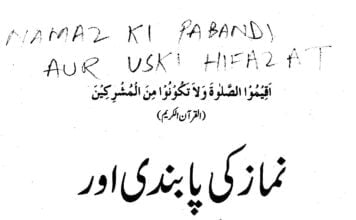 NAMAZ KI PABANDI
AUR USKI HIFAZAT
اَقِيْمُوا الصَّلٰوةَ وَلَا تَكُوْنُوْا مِنَ الْمُشْرِكِيْنَ
(القرآن الكريم)
نماز کی پابندی اور